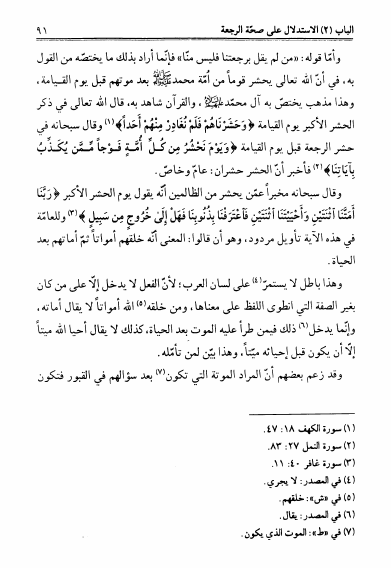 الباب (٢) الاستدلال على صحّة الرجعة ٩١
وأمّا قوله: «من لم يقل برجعتنا فليس منّا» فإنّما أراد بذلك ما يختصّه من القول
به، في أنّ الله تعالى يحشر قوماً من أُمّة محمد ﷺ بعد موتهم قبل يوم القيامة،
وهذا مذهب يختصّ به آل محمد ﷺ، والقرآن شاهد به، قال الله تعالى في ذكر
الحشر الأكبر يوم القيامة ﴿وَحَشَرْنَاهُمْ فَلَمْ نُغَادِرْ مِنْهُمْ أَحَداً﴾(١) وقال سبحانه في
حشر الرجعة قبل يوم القيامة ﴿وَيَوْمَ نَحْشُرُ مِن كُلِّ أُمَّةٍ فَوْجاً مِّمَّن يُكَذِّبُ
بِآيَاتِنَا﴾(٢) فأخبر أنّ الحشر حشران: عامّ وخاصّ.
وقال سبحانه مخبراً عمّن يحشر من الظالمين أنّه يقول يوم الحشر الأكبر ﴿رَبَّنَا
أَمَتَّنَا اثْنَتَيْنِ وَأَحْيَيْتَنَا اثْنَتَيْنِ فَاعْتَرَفْنَا بِذُنُوبِنَا فَهَلْ إِلَى خُرُوجٍ مِن سَبِيلٍ﴾(٣) وللعامّة
في هذه الآية تأويل مردود، وهو أن قالوا: المعنى أنّه خلقهم أمواتاً ثمّ أماتهم بعد
الحياة.
وهذا باطل لا يستمرّ(٤) على لسان العرب؛ لأنّ الفعل لا يدخل إلّا على من كان
بغير الصفة التي انطوى اللفظ على معناها، ومن خلقه(٥) الله أمواتاً لا يقال أماته،
وإنّما يدخل(٦) ذلك فيمن طرأ عليه الموت بعد الحياة، كذلك لا يقال أحيا الله ميتاً
إلّا أن يكون قبل إحيائه ميّتاً، وهذا بيّن لمن تأمّله.
وقد زعم بعضهم أنّ المراد الموتة التي تكون(٧) بعد سؤالهم في القبور فتكون
(١) سورة الكهف ١٨: ٤٧.
(٢) سورة النمل ٢٧: ٨٣.
(٣) سورة غافر ٤٠: ١١.
(٤) في المصدر: لا يجري.
(٥) في «ش»: خلقهم.
(٦) في المصدر: يقال.
(٧) في «ط»: الموت الذي يكون.